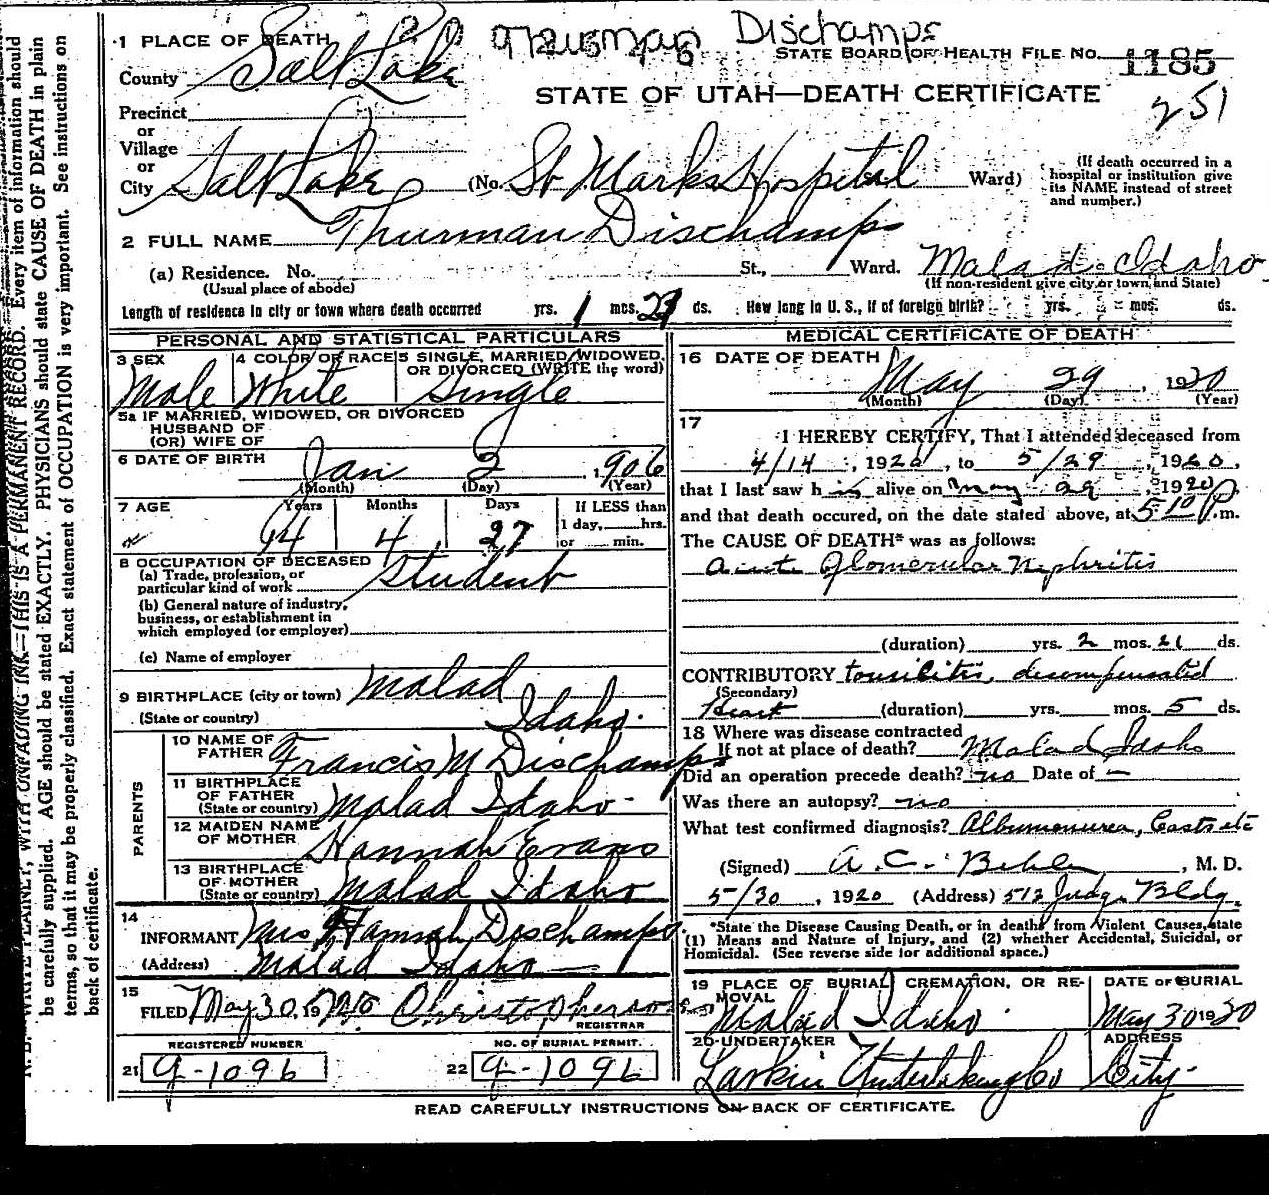 Thurman Dischamps
1 PLACE OF DEATH
STATE BOARD OF HEALTH FILE NO. 1185
County Salt Lake
STATE OF UTAH—DEATH CERTIFICATE
251
Precinct
or
Village
or
City Salt Lake (No. St Marks Hospital Ward)
(If death occurred in a hospital or institution give its NAME instead of street and number.)
2 FULL NAME Thurman Dischamps
(a) Residence. No. St., Ward. Malad Idaho
(Usual place of abode) (If non-resident give city or town, and State)
Length of residence in city or town where death occurred yrs. 1 mos. 29 ds. How long in U. S., if of foreign birth? yrs. mos. ds.
PERSONAL AND STATISTICAL PARTICULARS
3 SEX Male
4 COLOR OR RACE White
5 SINGLE, MARRIED, WIDOWED, OR DIVORCED (WRITE the word) Single
5a IF MARRIED, WIDOWED, OR DIVORCED
HUSBAND OF
(OR) WIFE OF
6 DATE OF BIRTH Jan 2 1906
(Month) (Day) (Year)
7 AGE Years Months Days If LESS than
14 4 27 1 day, hrs.
or min.
8 OCCUPATION OF DECEASED
(a) Trade, profession, or
particular kind of work Student
(b) General nature of industry,
business, or establishment in
which employed (or employer)
(c) Name of employer
9 BIRTHPLACE (city or town) Malad
(State or country) Idaho.
PARENTS
10 NAME OF FATHER Francis M Dischamps
11 BIRTHPLACE OF FATHER (State or country) Malad Idaho
12 MAIDEN NAME OF MOTHER Hannah Evans
13 BIRTHPLACE OF MOTHER (State or country) Malad Idaho
14
INFORMANT Mrs Hannah Dischamps
(Address) Malad Idaho
15
FILED May 30, 1920 Christopherson
REGISTRAR
REGISTERED NUMBER NO. OF BURIAL PERMIT.
21 9-1096 22 9-1096
MEDICAL CERTIFICATE OF DEATH
16 DATE OF DEATH May 29, 1920
(Month) (Day) (Year)
17
I HEREBY CERTIFY, That I attended deceased from
4/14, 1920, to 5/29, 1920,
that I last saw h is alive on May 29, 1920
and that death occured, on the date stated above, at 5 10 P.m.
The CAUSE OF DEATH* was as follows:
Acute Glomerular Nephritis
(duration) yrs. 2 mos. 21 ds.
CONTRIBUTORY tonsilitis, decompensated
(Secondary)
Heart (duration) yrs. mos. 5 ds.
18 Where was disease contracted
If not at place of death? Malad Idaho
Did an operation precede death? no Date of —
Was there an autopsy? no
What test confirmed diagnosis? Albumenurea, Casts etc
(Signed) A. C. , M. D.
5/30, 1920 (Address) 513 Judge Bldg.
*State the Disease Causing Death, or in deaths from Violent Causes, state
(1) Means and Nature of Injury, and (2) whether Accidental, Suicidal, or
Homicidal. (See reverse side for additional space.)
19 PLACE OF BURIAL, CREMATION, OR REMOVAL Malad Idaho
DATE OF BURIAL May 30 1920
20 UNDERTAKER Larkin Undertaking Co
ADDRESS City
READ CAREFULLY INSTRUCTIONS ON BACK OF CERTIFICATE.
N. B.—WRITE PLAINLY, WITH UNFADING INK—THIS IS A PERMANENT RECORD. Every item of information should
be carefully supplied. AGE should be stated EXACTLY. PHYSICIANS should state CAUSE OF DEATH in plain
terms, so that it may be properly classified. Exact statement of OCCUPATION is very important. See instructions on
back of certificate.